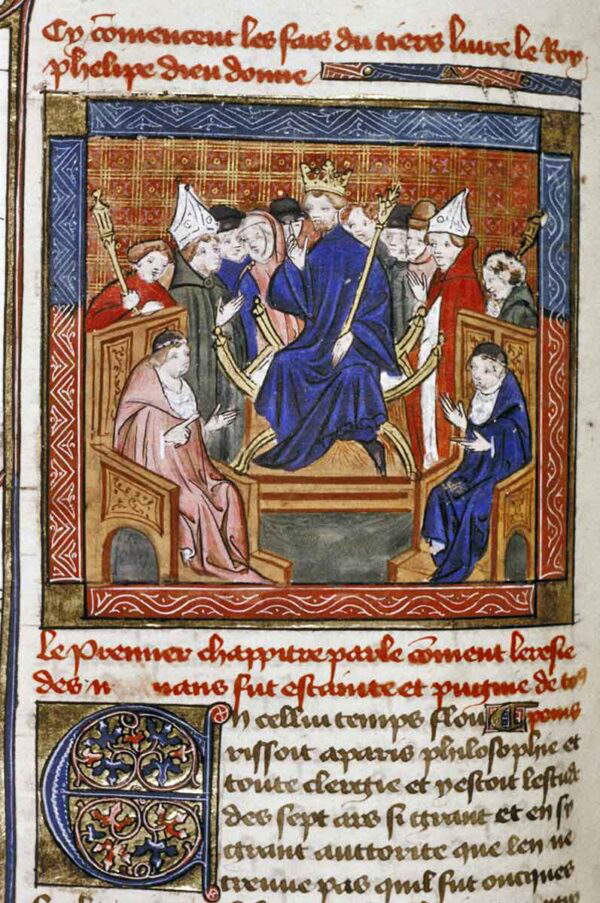 Cy cōmencent les fais du tiers liure le Roy
phelipe dieu donne
le Premier chappitre parle cōment leresie
des fut estainte et puignie de
En cellui temps flou poins
rissoit a paris philosophie et
toute clergie et yestoit lestude
des sept ars si grant et en sy
grant auttorite que len ne
treuue pas quil fut oncques